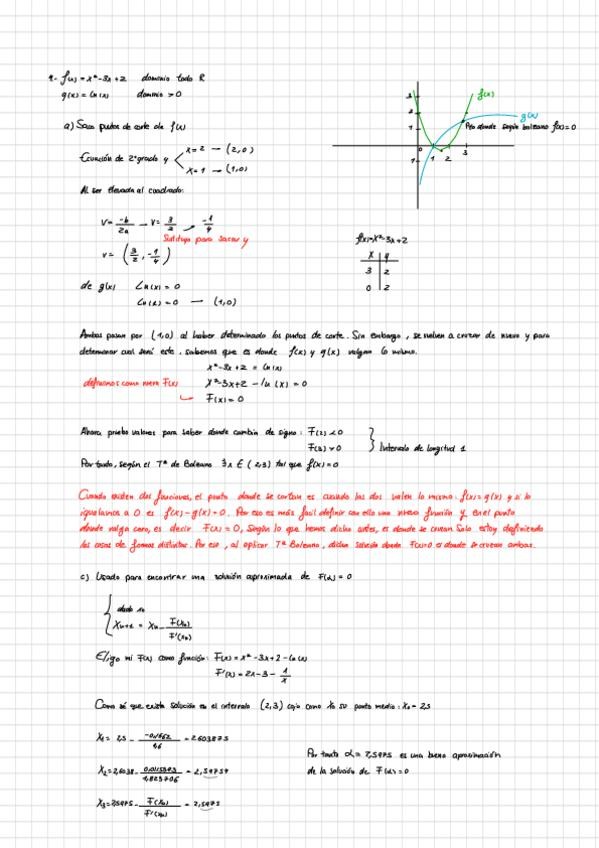 4.- f(x) = x²-3x+2 dominio todo R
g(x) = ln(x) dominio > 0
f(x)
g(x)
Pto donde según bolzano f(x)=0
3
2
1
0 1 2 3
-1
a) Saco puntos de corte de f(x)
Ecuación de 2º grado y x=2 → (2,0)
x=1 → (1,0)
Al ser elevada al cuadrado:
V = -b/2a → V = 3/2 → -1/4
Sustituyo para sacar y
V = (3/2, -1/4)
f(x)=x²-3x+2
x y
3 2
0 2
de g(x) Ln(x) = 0
Ln(1) = 0 → (1,0)
Ambas pasan por (1,0) al haber determinado los puntos de corte. Sin embargo, se vuelven a cruzar de nuevo y para
determinar cual será este, sabemos que es donde f(x) y g(x) valgan lo mismo.
x²-3x+2 = ln(x)
definamos como nueva F(x) x²-3x+2-ln(x) = 0
F(x) = 0
Ahora, pruebo valores para saber donde cambia de signo: F(2) < 0
F(3) > 0
Intervalo de longitud 1
Por tanto, según el Tª de Bolzano ∃ x ∈ (2,3) tal que f(x) = 0
Cuando existen dos funciones, el punto donde se cortan es cuando las dos valen lo mismo: f(x) = g(x) y si lo
igualamos a 0 es f(x)-g(x)=0. Por eso es más fácil definir con ello una nueva función y en el punto
donde valga cero, es decir F(x) = 0, según lo que hemos dicho antes, es donde se crucen. Solo estoy definiendo
las cosas de formas distintas. Por eso, al aplicar Tª Bolzano, dicha solución donde F(x)=0 es donde se crucen ambas.
c) Usado para encontrar una solución aproximada de F(α) = 0
dado x₀
Xₙ₊₁ = Xₙ - F(xₙ)/F'(xₙ)
Elijo mi F(x) como función: F(x) = x²-3x+2-ln(x)
F'(x) = 2x-3-1/x
Como sé que existe solución en el intervalo (2,3) cojo como X₀ su punto medio: X₀ = 2,5
X₁ = 2,5 - -0,1662/1,6 = 2,603875
X₂ = 2,6038 - 0,0115393/1,823706 = 2,59754
X₃ = 2,5975 - F(x₂)/F'(x₂) = 2,5975
Por tanto α = 2,5975 es una buena aproximación
de la solución de F(α) = 0